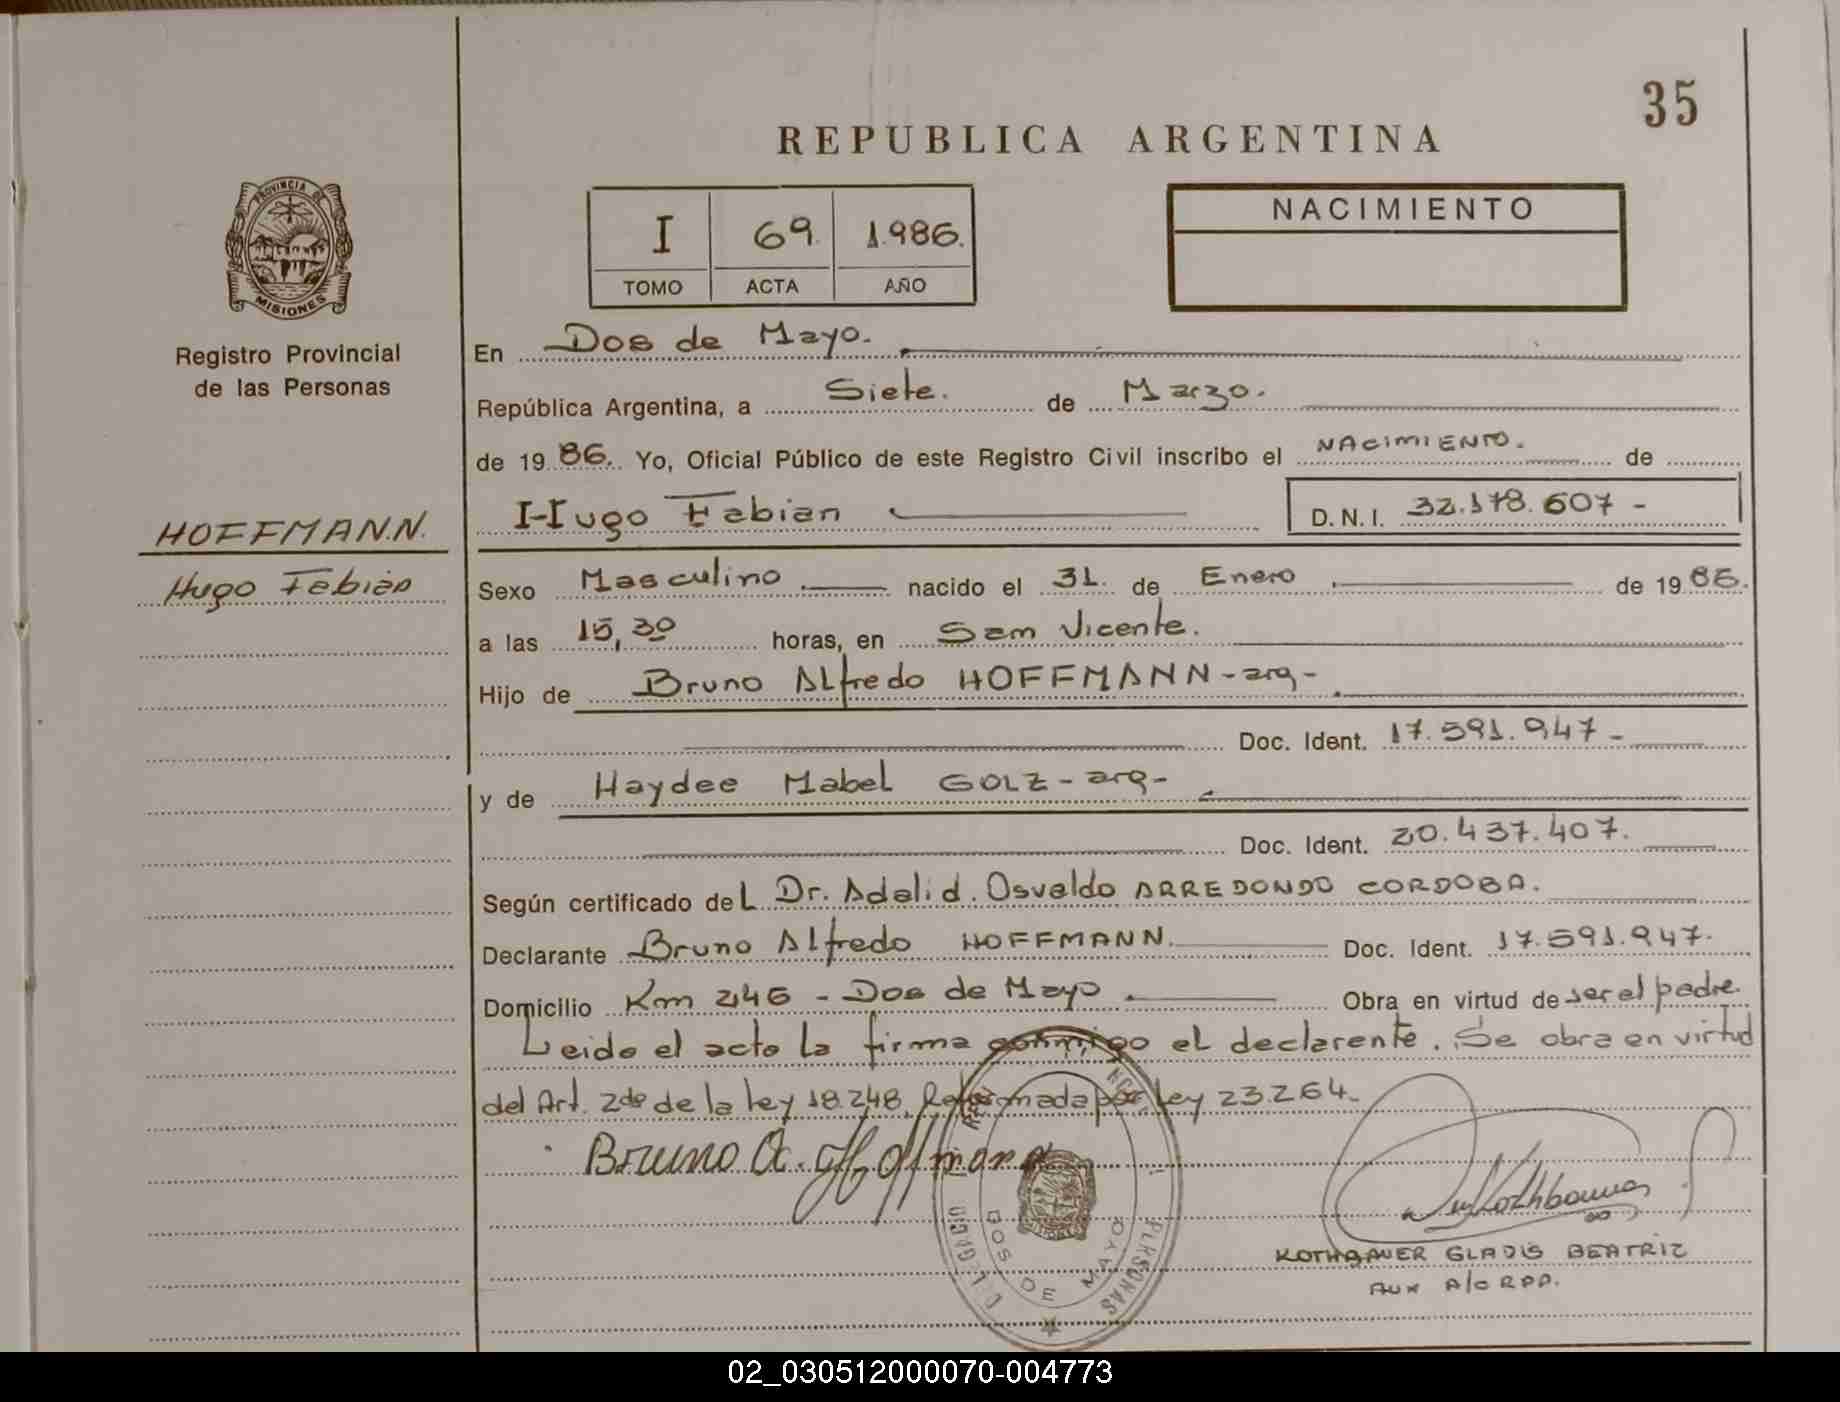 35
REPUBLICA ARGENTINA
PROVINCIA DE
MISIONES
Registro Provincial
de las Personas
I 69. 1.986.
TOMO ACTA AÑO
NACIMIENTO
En Dos de Mayo.
República Argentina, a Siete. de Marzo.
de 19 86. Yo, Oficial Público de este Registro Civil inscribo el NACIMIENTO. de
Hugo Fabian D.N.I. 32.178.607 -
HOFFMANN.
Hugo Fabian
Sexo Masculino nacido el 31. de Enero de 19 86.
a las 15,30 horas, en San Vicente.
Hijo de Bruno Alfredo HOFFMANN - arg -
Doc. Ident. 17.591.947 -
y de Haydee Mabel GOLZ - arg -
Doc. Ident. 20.437.407.
Según certificado del Dr. Adalid. Osvaldo ARREDONDO CORDOBA.
Declarante Bruno Alfredo HOFFMANN. Doc. Ident. 17.591.947.
Domicilio Km 246 - Dos de Mayo. Obra en virtud de ser el padre.
Leido el acto la firma conmigo el declarante. Se obra en virtud
del Art. 2do de la Ley 18.248. Reformada por Ley 23.264.
Bruno A. Hoffmann
PERSONAS
DOS DE MAYO
KOTHBAUER GLADIS BEATRIZ
AUX A/C RPP.
02_030512000070-004773